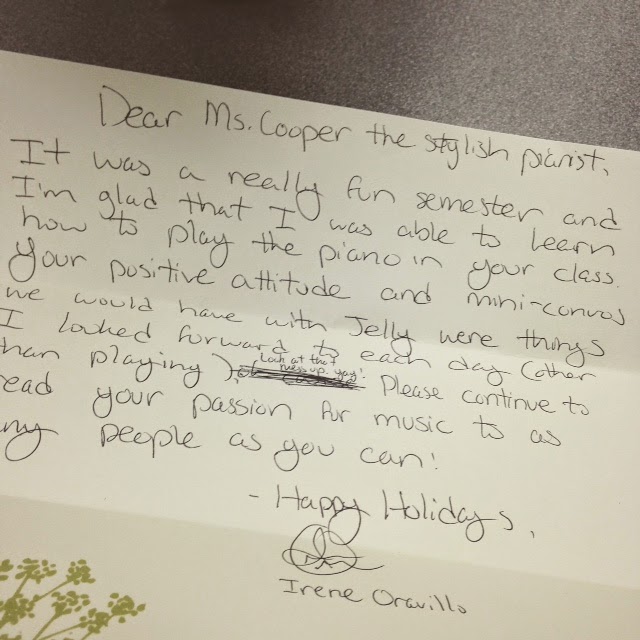 Dear Ms. Cooper the stylish pianist,
It was a really fun semester and
I'm glad that I was able to learn
how to play the piano in your class.
Your positive attitude and mini-convos
we would have with Jelly were things
I looked forward to each day (other
than playing). Look at that
mess up yay! Please continue to
read your passion for music to as
ny people as you can!
- Happy Holidays,
Irene Oravillo